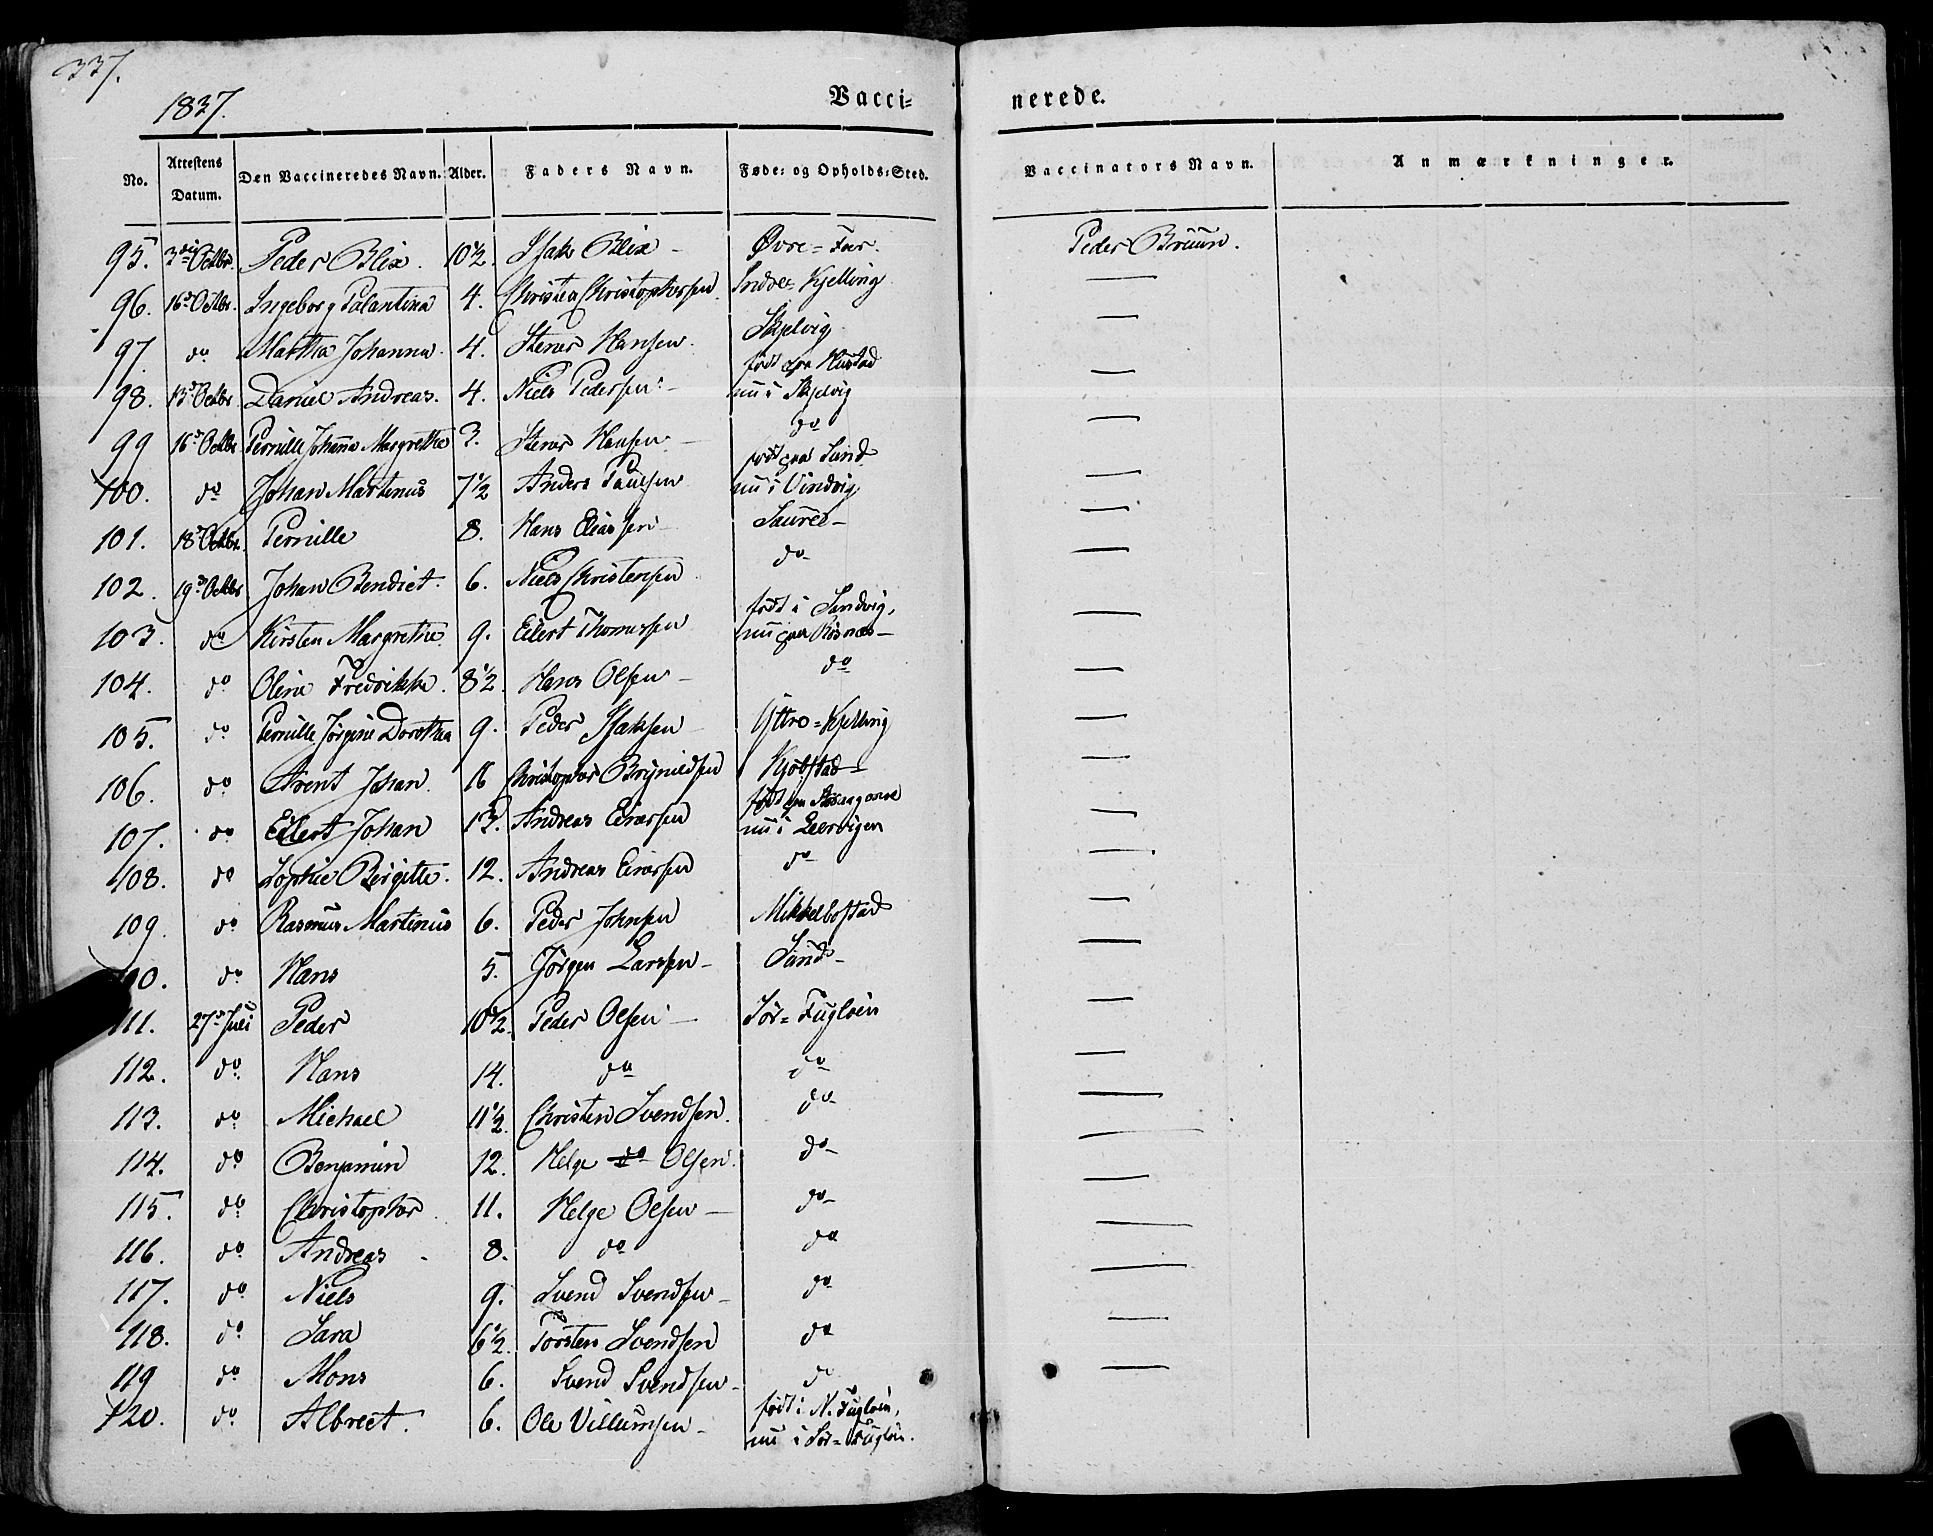 337.
1837.
Vacci=
nerede.
No. Attestens Datum. Den Vaccineredes Navn. Alder. Faders Navn. Føde= og Opholds=Sted. Vaccinators Navn. Anmærkninger.
95. 3die Octbr. Peder Blix. 10½. Isak Blix – Øvre=Fær. Peder Bruun.
96. 16d Octbr. Ingeborg Palantina 4. Christen Christophersen. Indre=Kjelling —
97. do Martha Johanna. 4. Stener Hansen. Skjelvig —
98. 13d Octbr. Daniel Andreas. 4. Niels Pedersen. – født paa Hustad nu i Skjelvig —
99 16d Octbr Pernille Johanna Margrethe 3. Stener Hansen. – do —
100. do Johan Martinus 7½ Anders Paulsen født paa Sund nu i Vindvig —
101. 18d Octbr. Pernille 8. Hans Eliassen – Saurei – —
102. 19d Octbr Johan Bendict. 6. Niels Christensen do —
103. do Kirsten Margrethe. 9. Eilert Thomessen født i Sandvig, nu paa Røsnæs – —
104. do Oline Fredrikke. 8½. Hans Olsen – do
105. do Pernille Jørgine Dorothea 9. Peder Isaksen – Yttre=Kjelling —
106. do Arent Johan. 16 Christopher Brynildsen Kjøbstad – —
107. do Eilert Johan 13. Andreas Einersen født paa nu i Leervigen —
108. do Sophie Birgitte. 12. Andreas Einersen do —
109. do Rasmus Martinus 6. Peder Johnsen Mikkelbostad —
110. do Hans 5. Jørgen Larssen – Sund – —
111. 27d Juli Peder 10½. Peder Olsen – Sør=Fugløen —
112. do Hans 14. do do —
113. do Michael 11½ Christen Svendsen. do —
114. do Benjamin 12. Helge do Olsen. do —
115. do Christopher 11. Helge Olsen – do —
116. do Andreas 8. do do —
117. do Niels 9. Svend Svendsen – do —
118. do Sara 6½. Torsten Svendsen do —
119 do Mons 6. Svend Svendsen – do —
120. do Albrect. 6. Ole Villumsen – født i N. Fugløen, nu i Sør=Fugløn.